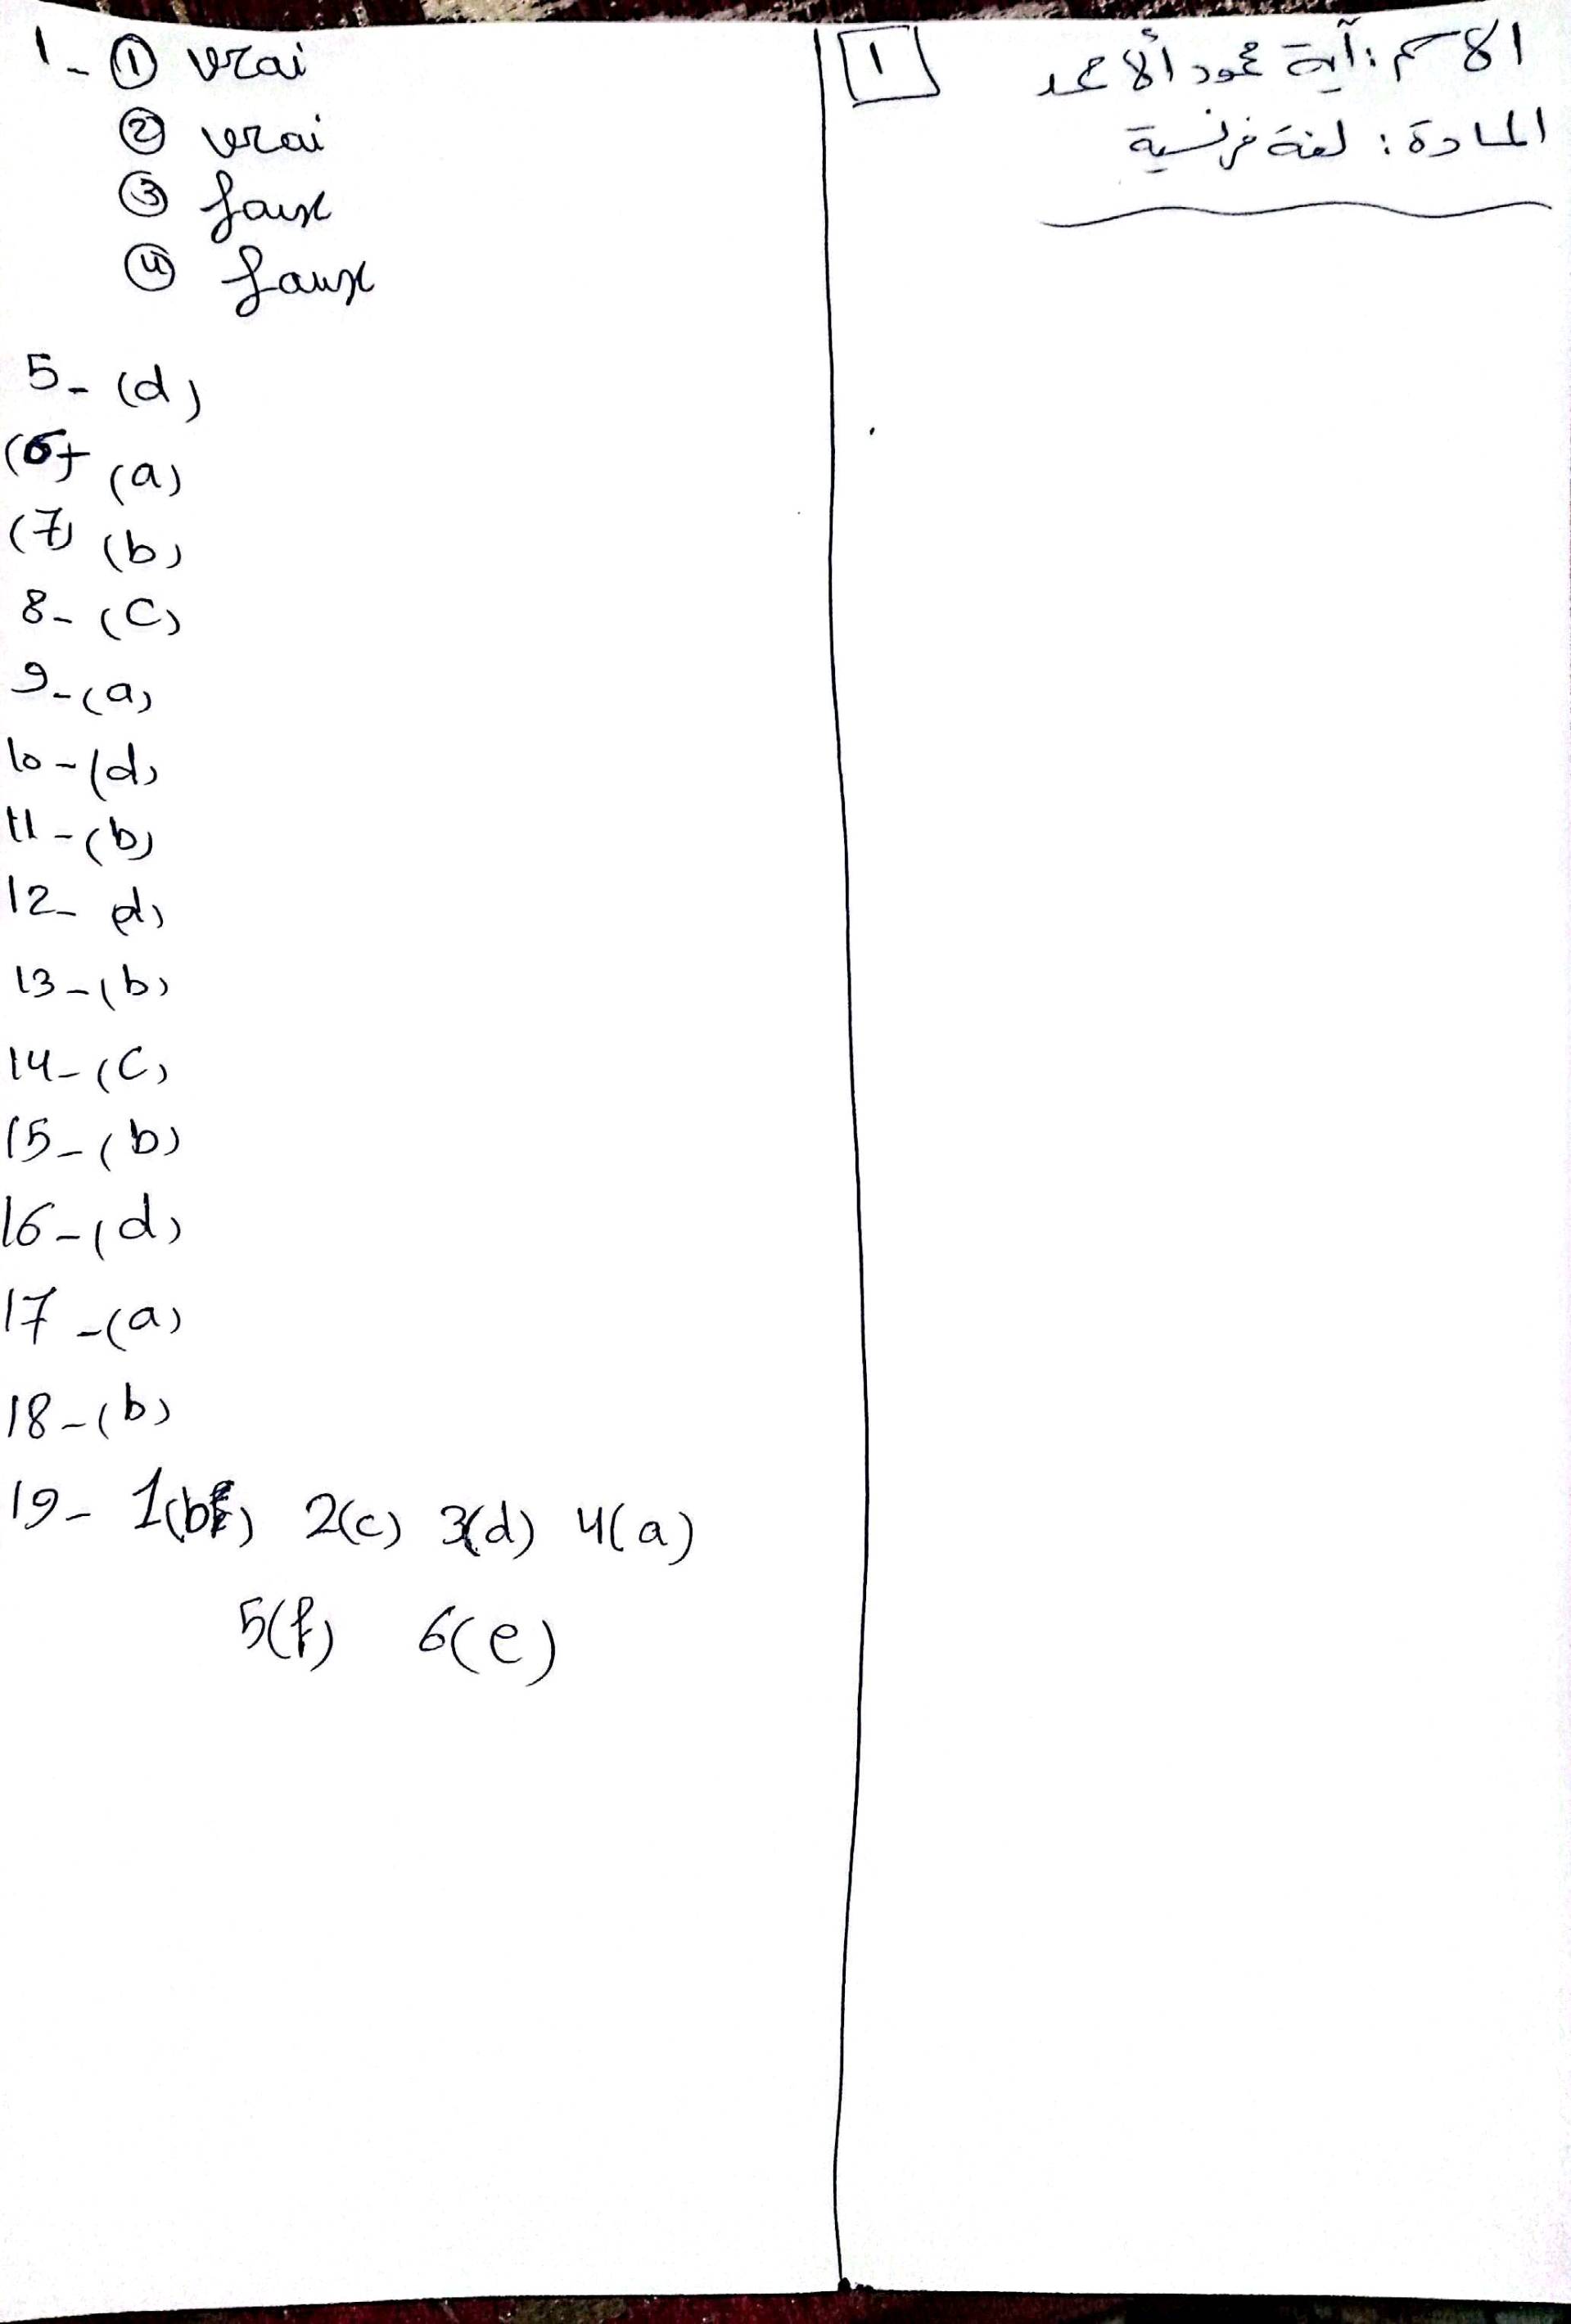 الاسم: آية محمود ألاحمد
المادة: لغة فرنسية
1
1- ① vrai
② vrai
③ faux
④ faux
5- (d)
(6) (a)
(7) (b)
8- (C)
9- (a)
10- (d)
11- (b)
12- d)
13- (b)
14- (C)
15- (b)
16- (d)
17- (a)
18- (b)
19- 1(b) 2(c) 3(d) 4(a)
5(f) 6(e)